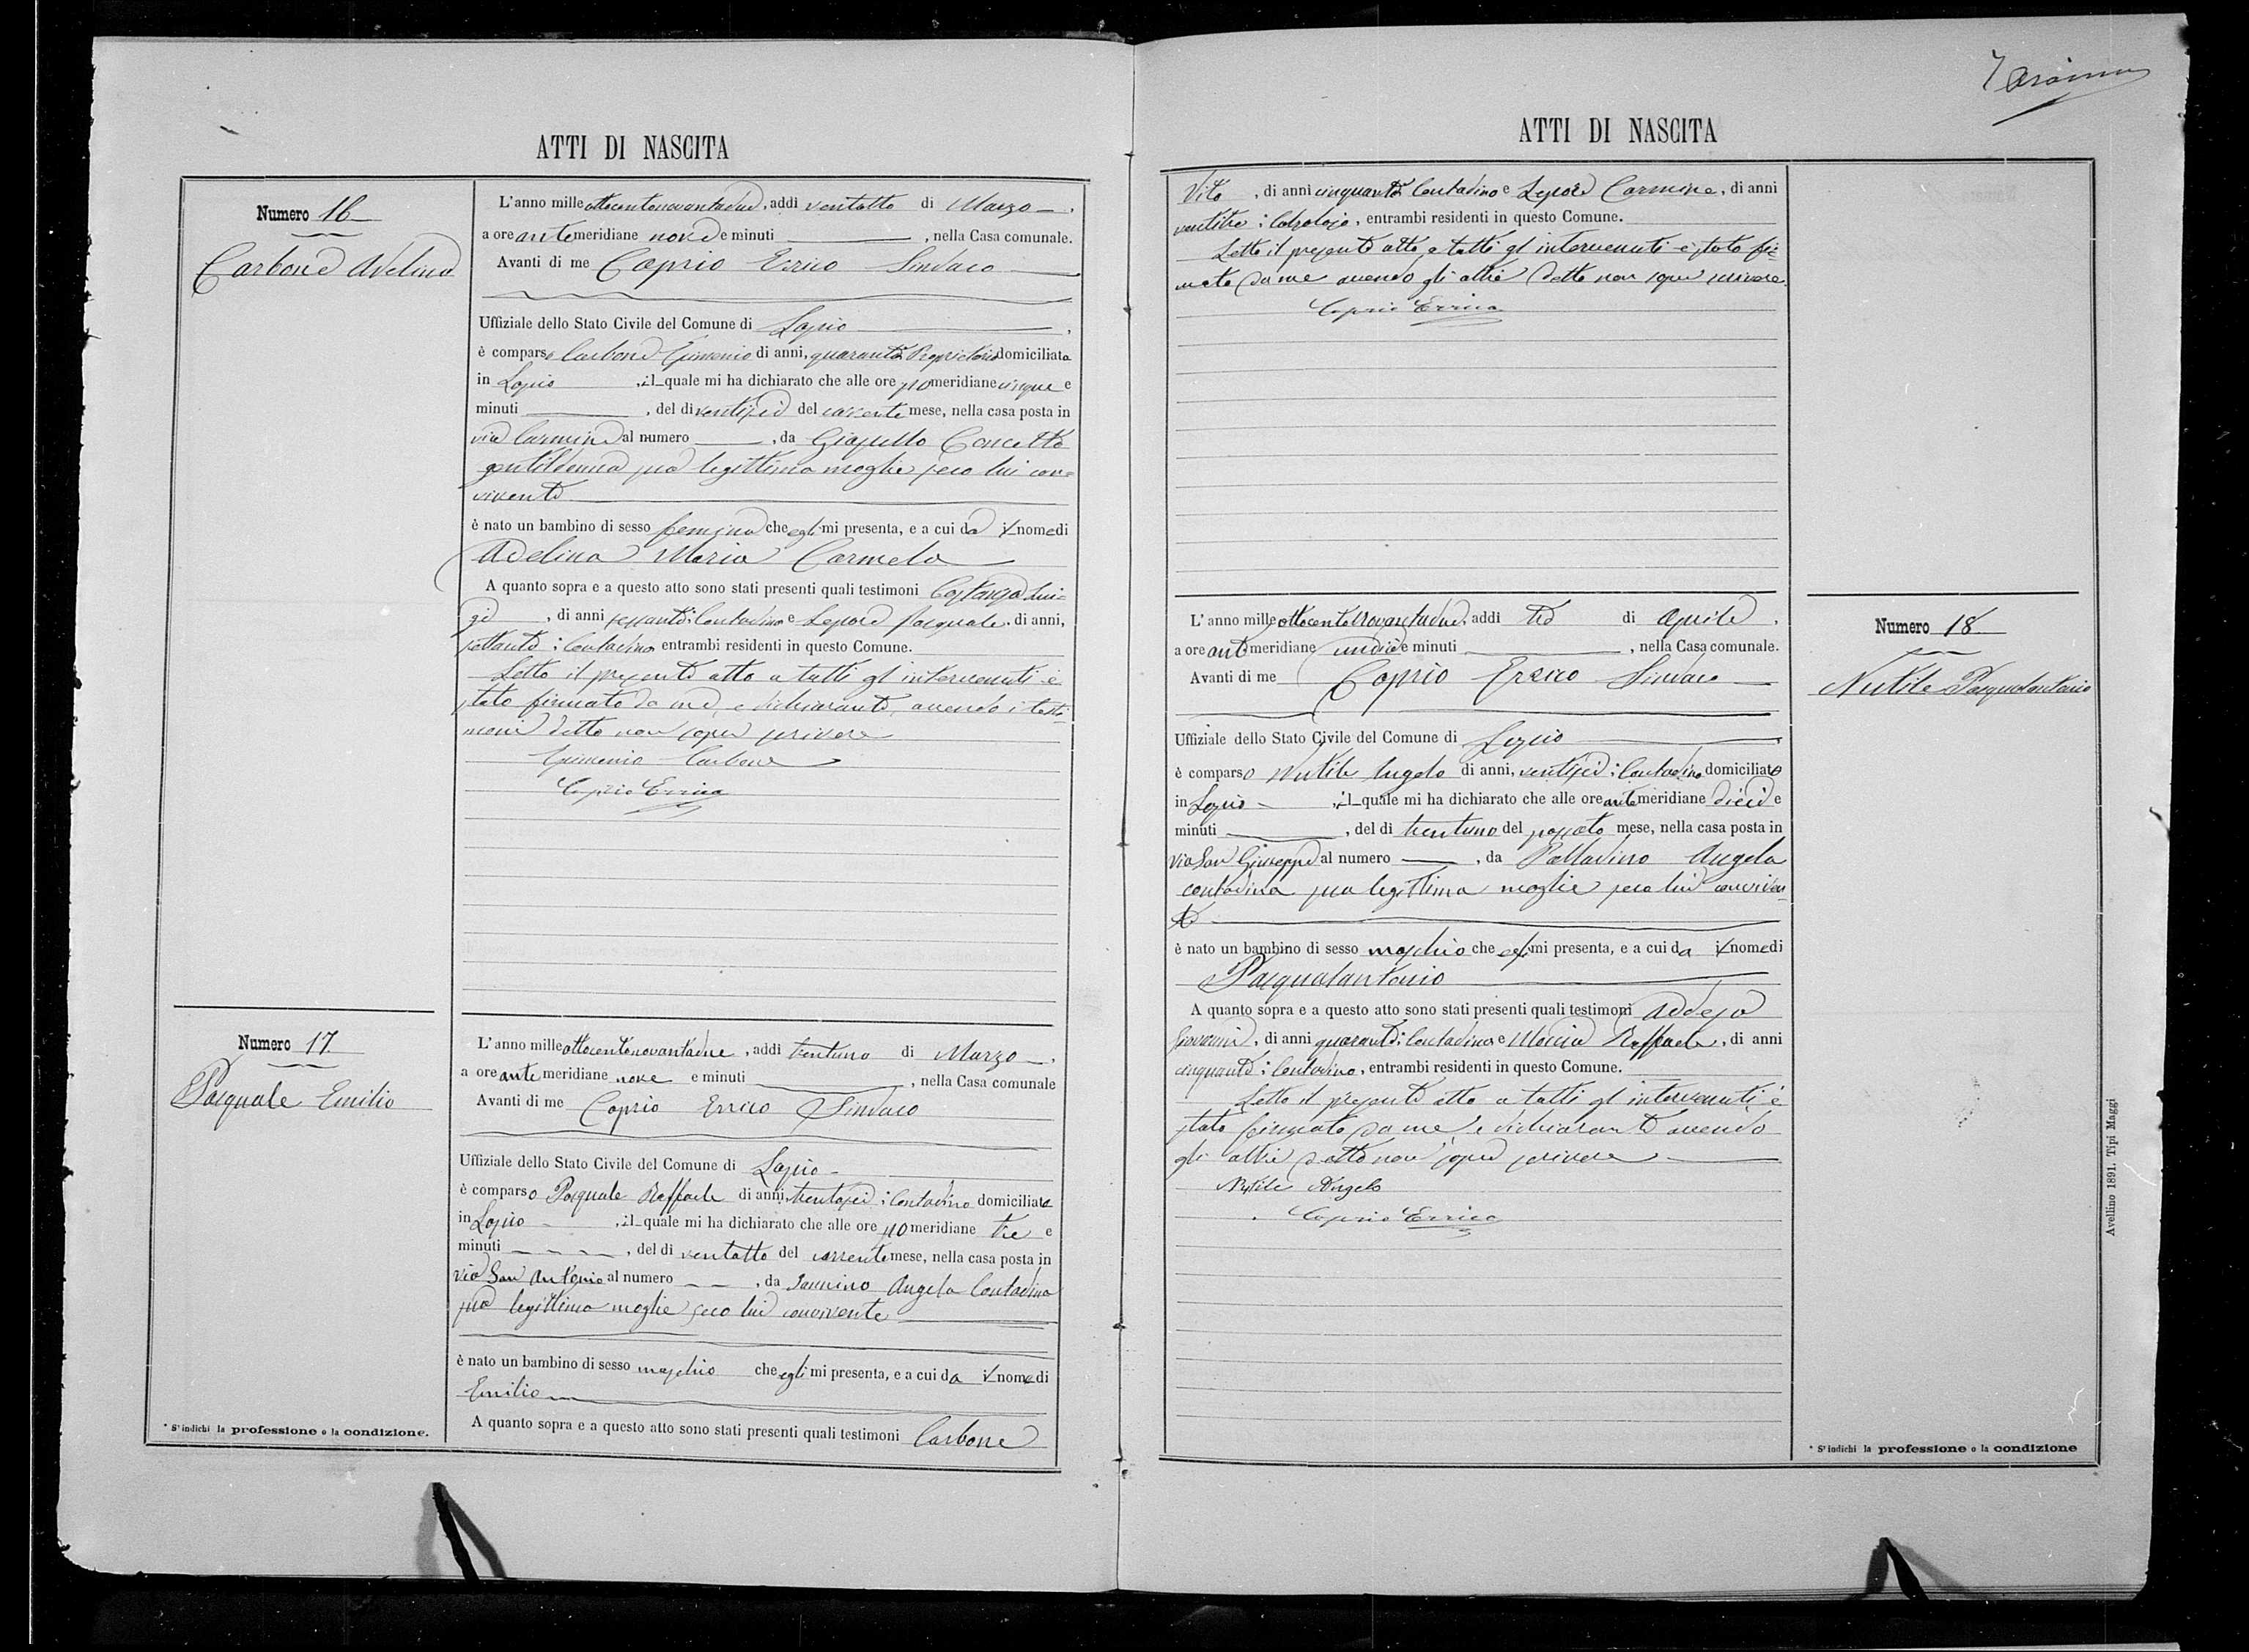 ATTI DI NASCITA
Numero 16
Carbone Adelina
L'anno mille ottocentonovantadue, addì ventotto di Marzo
a ore antemeridiane nove e minuti , nella Casa comunale.
Avanti di me Caprio Errico Sindaco
Uffiziale dello Stato Civile del Comune di Lapio,
è comparso Carbone di anni, quaranta Proprietario domiciliato
in Lapio , il quale mi ha dichiarato che alle ore pomeridiane cinque e
minuti , del dì ventisei del corrente mese, nella casa posta in
via Carmine al numero , da Concetta
gentildonna sua legittima moglie seco lui con=
vivente
è nato un bambino di sesso che egli mi presenta, e a cui da il nome di
Adelina Maria Carmela
A quanto sopra e a questo atto sono stati presenti quali testimoni Costanza Lui=
gi , di anni sessanta: Contadino e Lepore Pasquale, di anni,
settanta: Contadino entrambi residenti in questo Comune.
Letto il presente atto a tutti gl'intervenuti è
stato firmato da me, e dichiarante, avendo i testi
moni detto non saper scrivere
Carbone
Caprio Errico
Numero 17.
Pasquale Emilio
L'anno mille ottocentonovantadue, addì trentuno di Marzo,
a ore antemeridiane nove e minuti , nella Casa comunale
Avanti di me Caprio Errico Sindaco
Uffiziale dello Stato Civile del Comune di Lapio
è comparso Pasquale Raffaele di anni, trentasei: Contadino domiciliato
in Lapio , il quale mi ha dichiarato che alle ore pomeridiane tre e
minuti , del dì ventotto del corrente mese, nella casa posta in
via San Antonio al numero , da Iannino Angela Contadina
sua legittima moglie seco lui convivente
è nato un bambino di sesso maschio che egli mi presenta, e a cui da il nome di
Emilio
A quanto sopra e a questo atto sono stati presenti quali testimoni Carbone
* S'indichi la professione o la condizione.
ATTI DI NASCITA
Vito , di anni cinquanta Contadino e Lepore Carmine, di anni
ventitre: Calzolaio, entrambi residenti in questo Comune.
Letto il presente atto, a tutti gl'intervenuti è stato fir=
mato da me avendo gli altri detto non saper scrivere.
Caprio Errico
L'anno mille ottocentonovantadue, addì tre di Aprile,
a ore antimeridiane undici e minuti , nella Casa comunale.
Avanti di me Caprio Errico Sindaco
Uffiziale dello Stato Civile del Comune di Lapio
è comparso Nutile Angelo di anni, ventisei: Contadino domiciliato
in Lapio , il quale mi ha dichiarato che alle ore antemeridiane dieci e
minuti , del dì trentuno del passato mese, nella casa posta in
via San Giuseppe al numero , da Palladino Angela
contadina sua legittima moglie seco lui conviven=
te
è nato un bambino di sesso maschio che egli mi presenta, e a cui da il nome di
Pasqualantonio
A quanto sopra e a questo atto sono stati presenti quali testimoni Addesa
Giovanni, di anni quaranta: Contadino e Moccia Raffaele, di anni
cinquanta: Contadino, entrambi residenti in questo Comune.
Letto il presente atto a tutti gl'intervenuti è
stato firmato da me e dichiarante avendo
gli altri detto non saper scrivere
Nutile Angelo
Caprio Errico
Numero 18.
Nutile Pasqualantonio
* S'indichi la professione o la condizione
Avellino 1891. Tipi Maggi